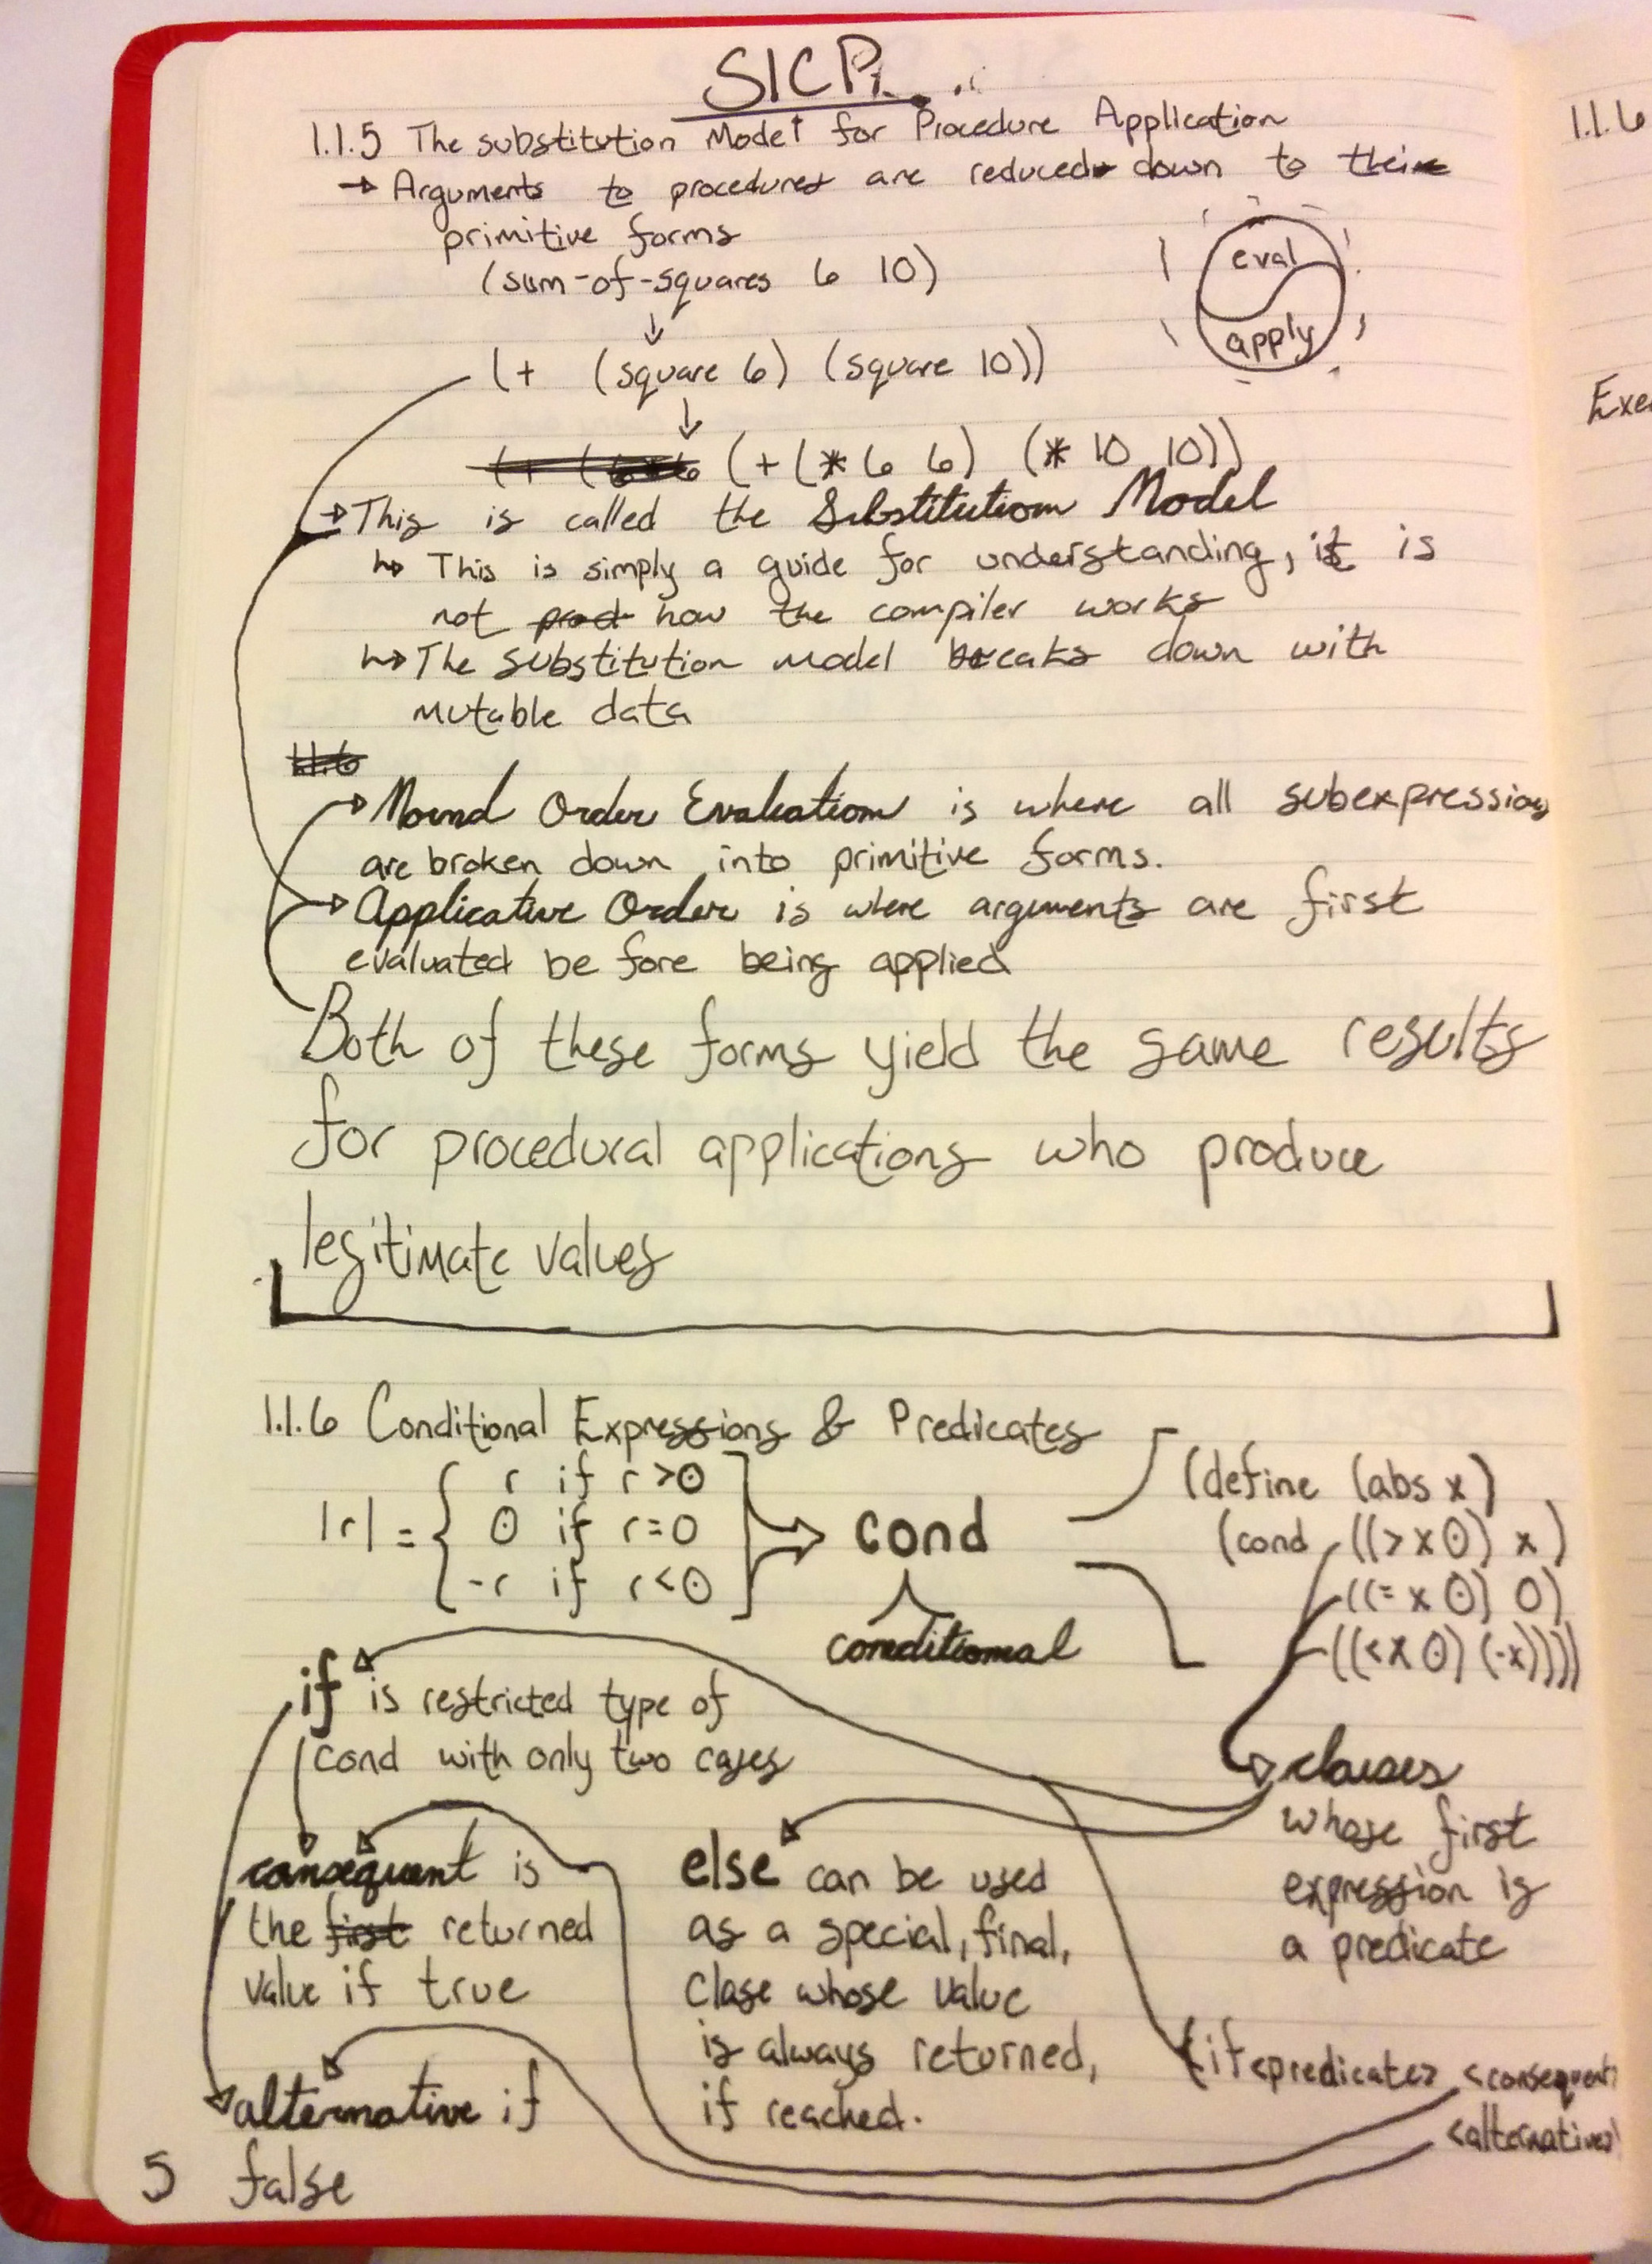 SICP
1.1.5 The substitution Model for Procedure Application
→ Arguments to procedures are reduced down to their
primitive forms
(sum-of-squares 6 10)
↓
eval
apply
(+ (square 6) (square 10))
↓
(+ (* 6 6) (* 10 10))
→ This is called the Substitution Model
↳ This is simply a guide for understanding, it is
not how the compiler works
↳ The substitution model breaks down with
mutable data
1.1.6
→ Normal Order Evaluation is where all subexpressions
are broken down into primitive forms.
→ Applicative Order is where arguments are first
evaluated before being applied
Both of these forms yield the same results
for procedural applications who produce
legitimate values
1.1.6 Conditional Expressions & Predicates
|r| = { r if r > 0
0 if r = 0
-r if r < 0
cond
conditional
(define (abs x)
(cond ((> x 0) x)
((= x 0) 0)
((< x 0) (-x))))
if is restricted type of
cond with only two cases
clauses
whose first
expression is
a predicate
consequent is
the first returned
value if true
else can be used
as a special, final,
clase whose value
is always returned,
if reached.
(if <predicate> <consequent>
<alternative>)
alternative if
false
5
1.1.6
Exe